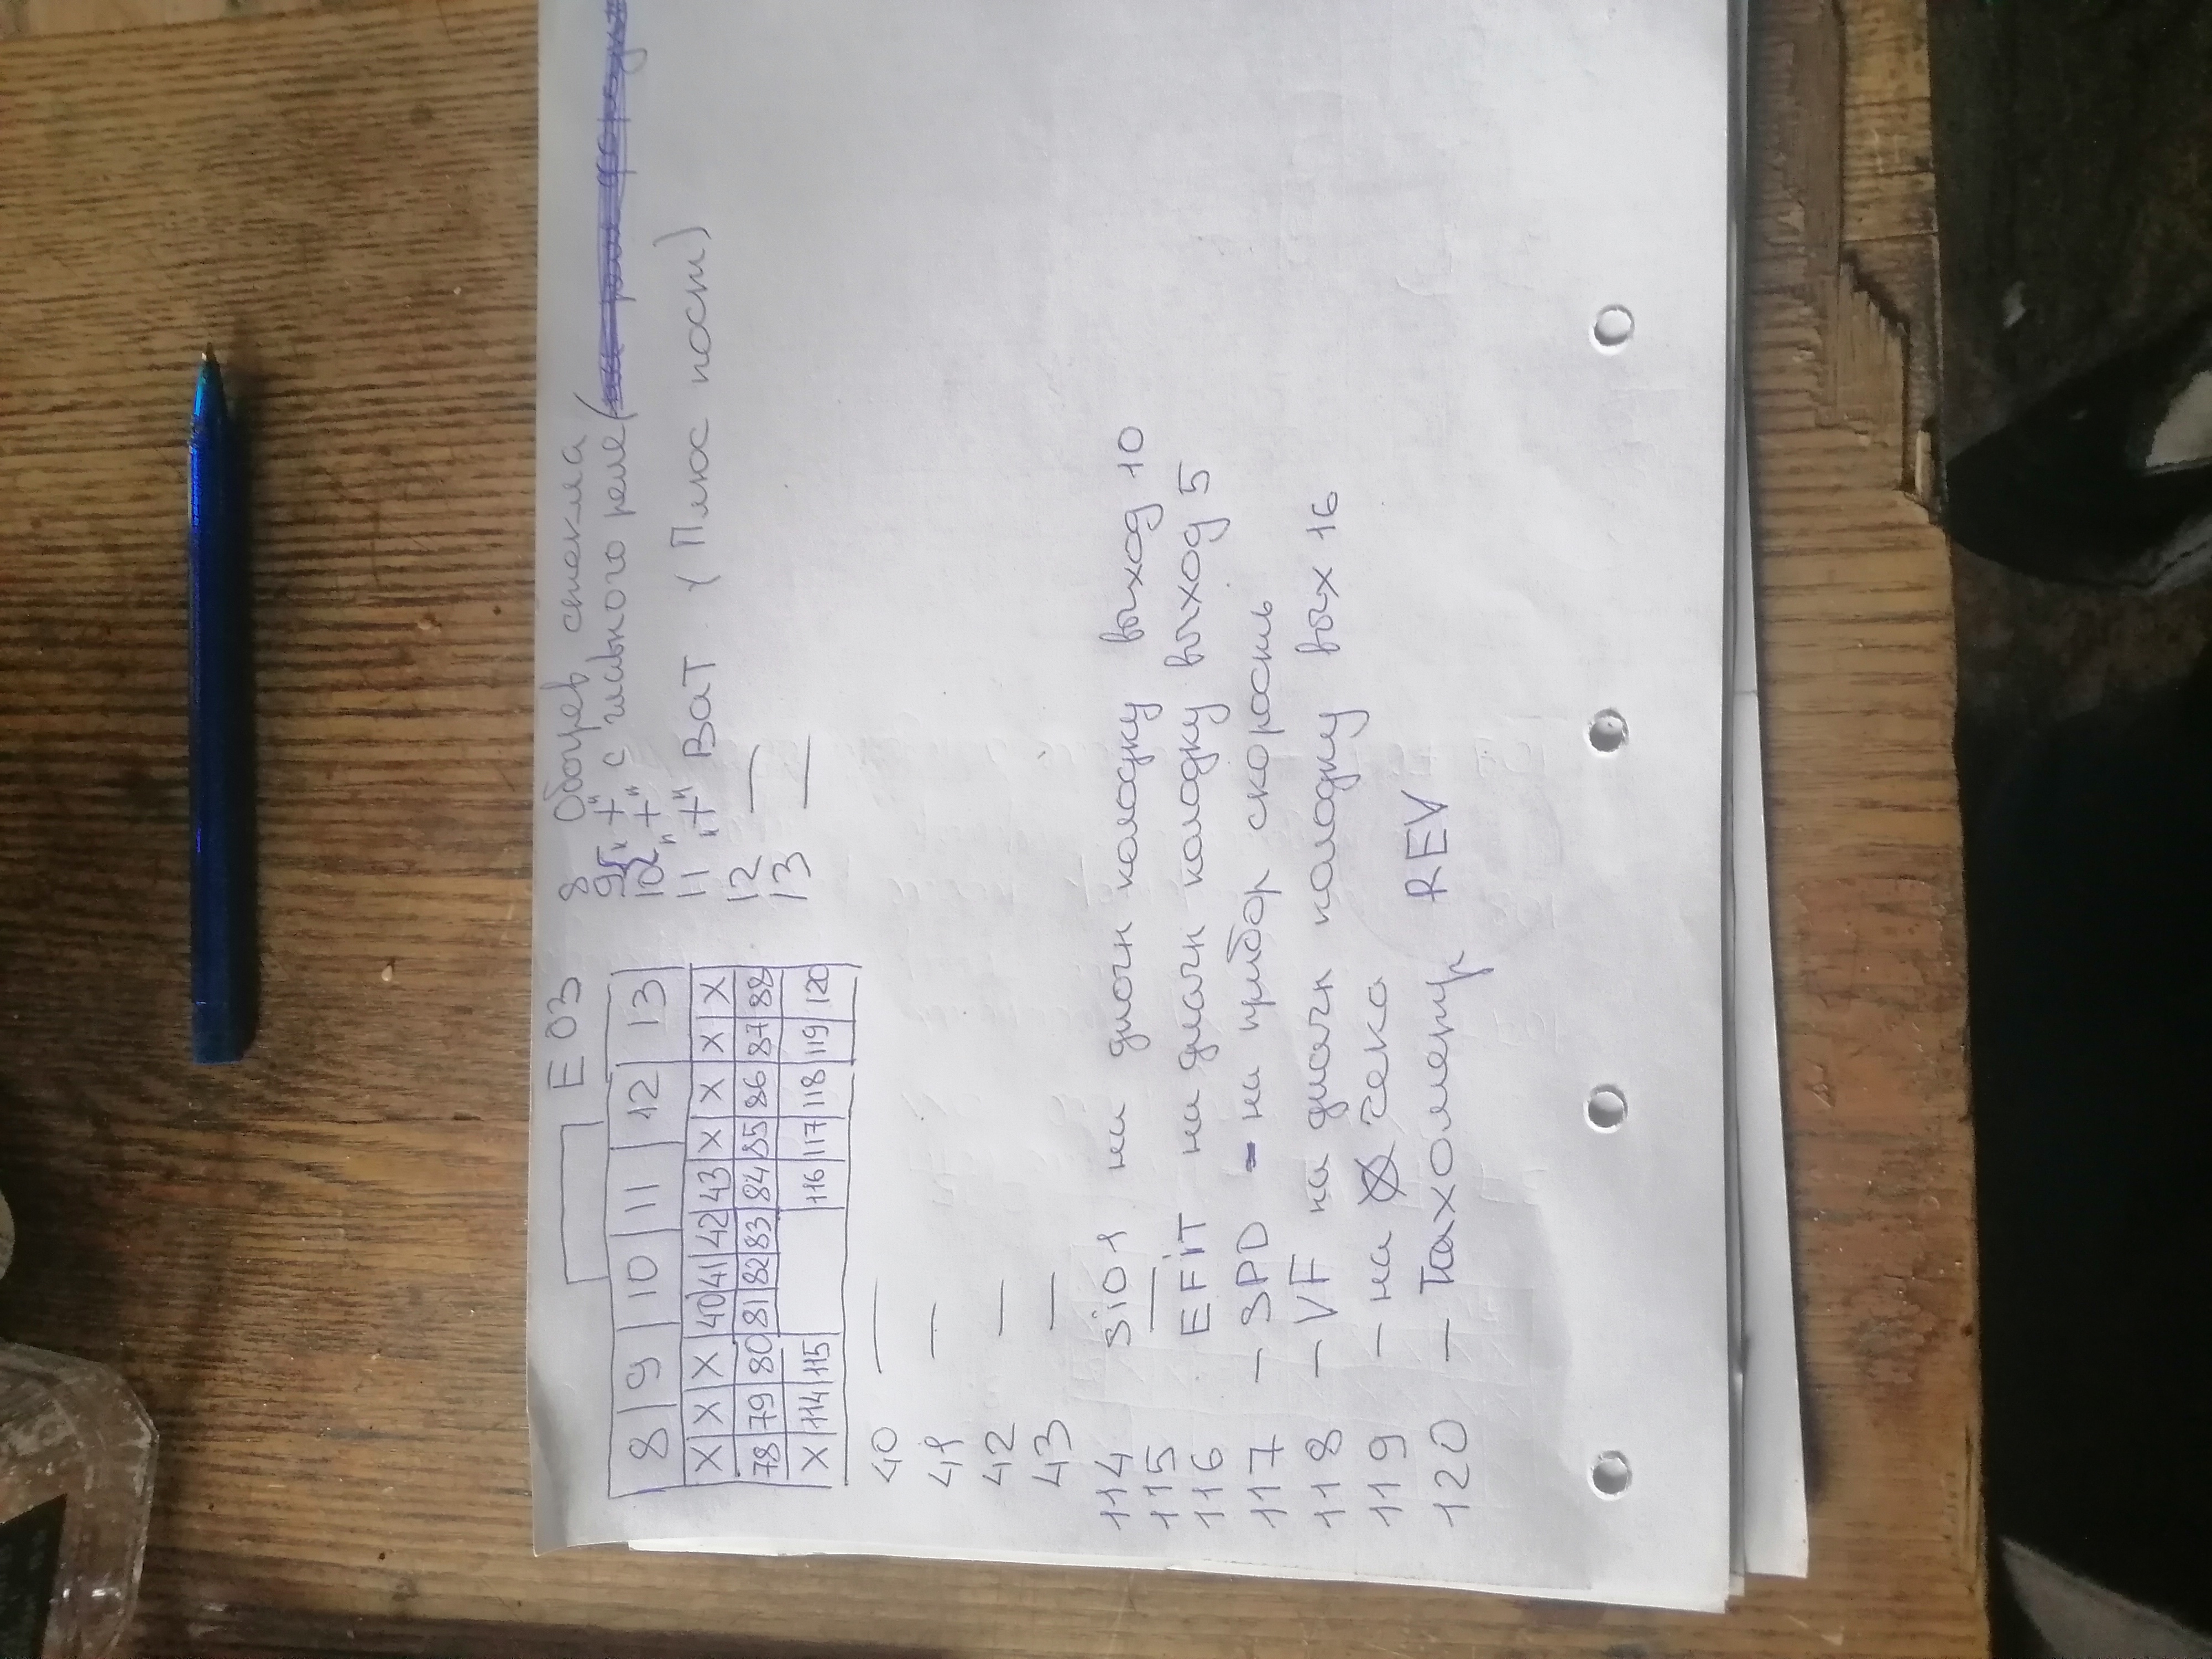 E03
8 9 10 11 12 13
X X X 40 41 42 43 X X X X
78 79 80 81 82 83 84 85 86 87 88
X 114 115 116 117 118 119 120
8 Обогрев стекла
9 „+“ с главного реле (
10 „+“
11 „+“ Бат. (Плюс пост)
12 —
13 —
40 —
41 —
42 —
43 —
114 Sio1 на диагн колодку выход 10
115 —
116 EFiT на диагн колодку выход 5
117 – SPD – на прибор скорость
118 – VF на диагн колодку вых 16
119 – на чека
120 – Тахометр REV